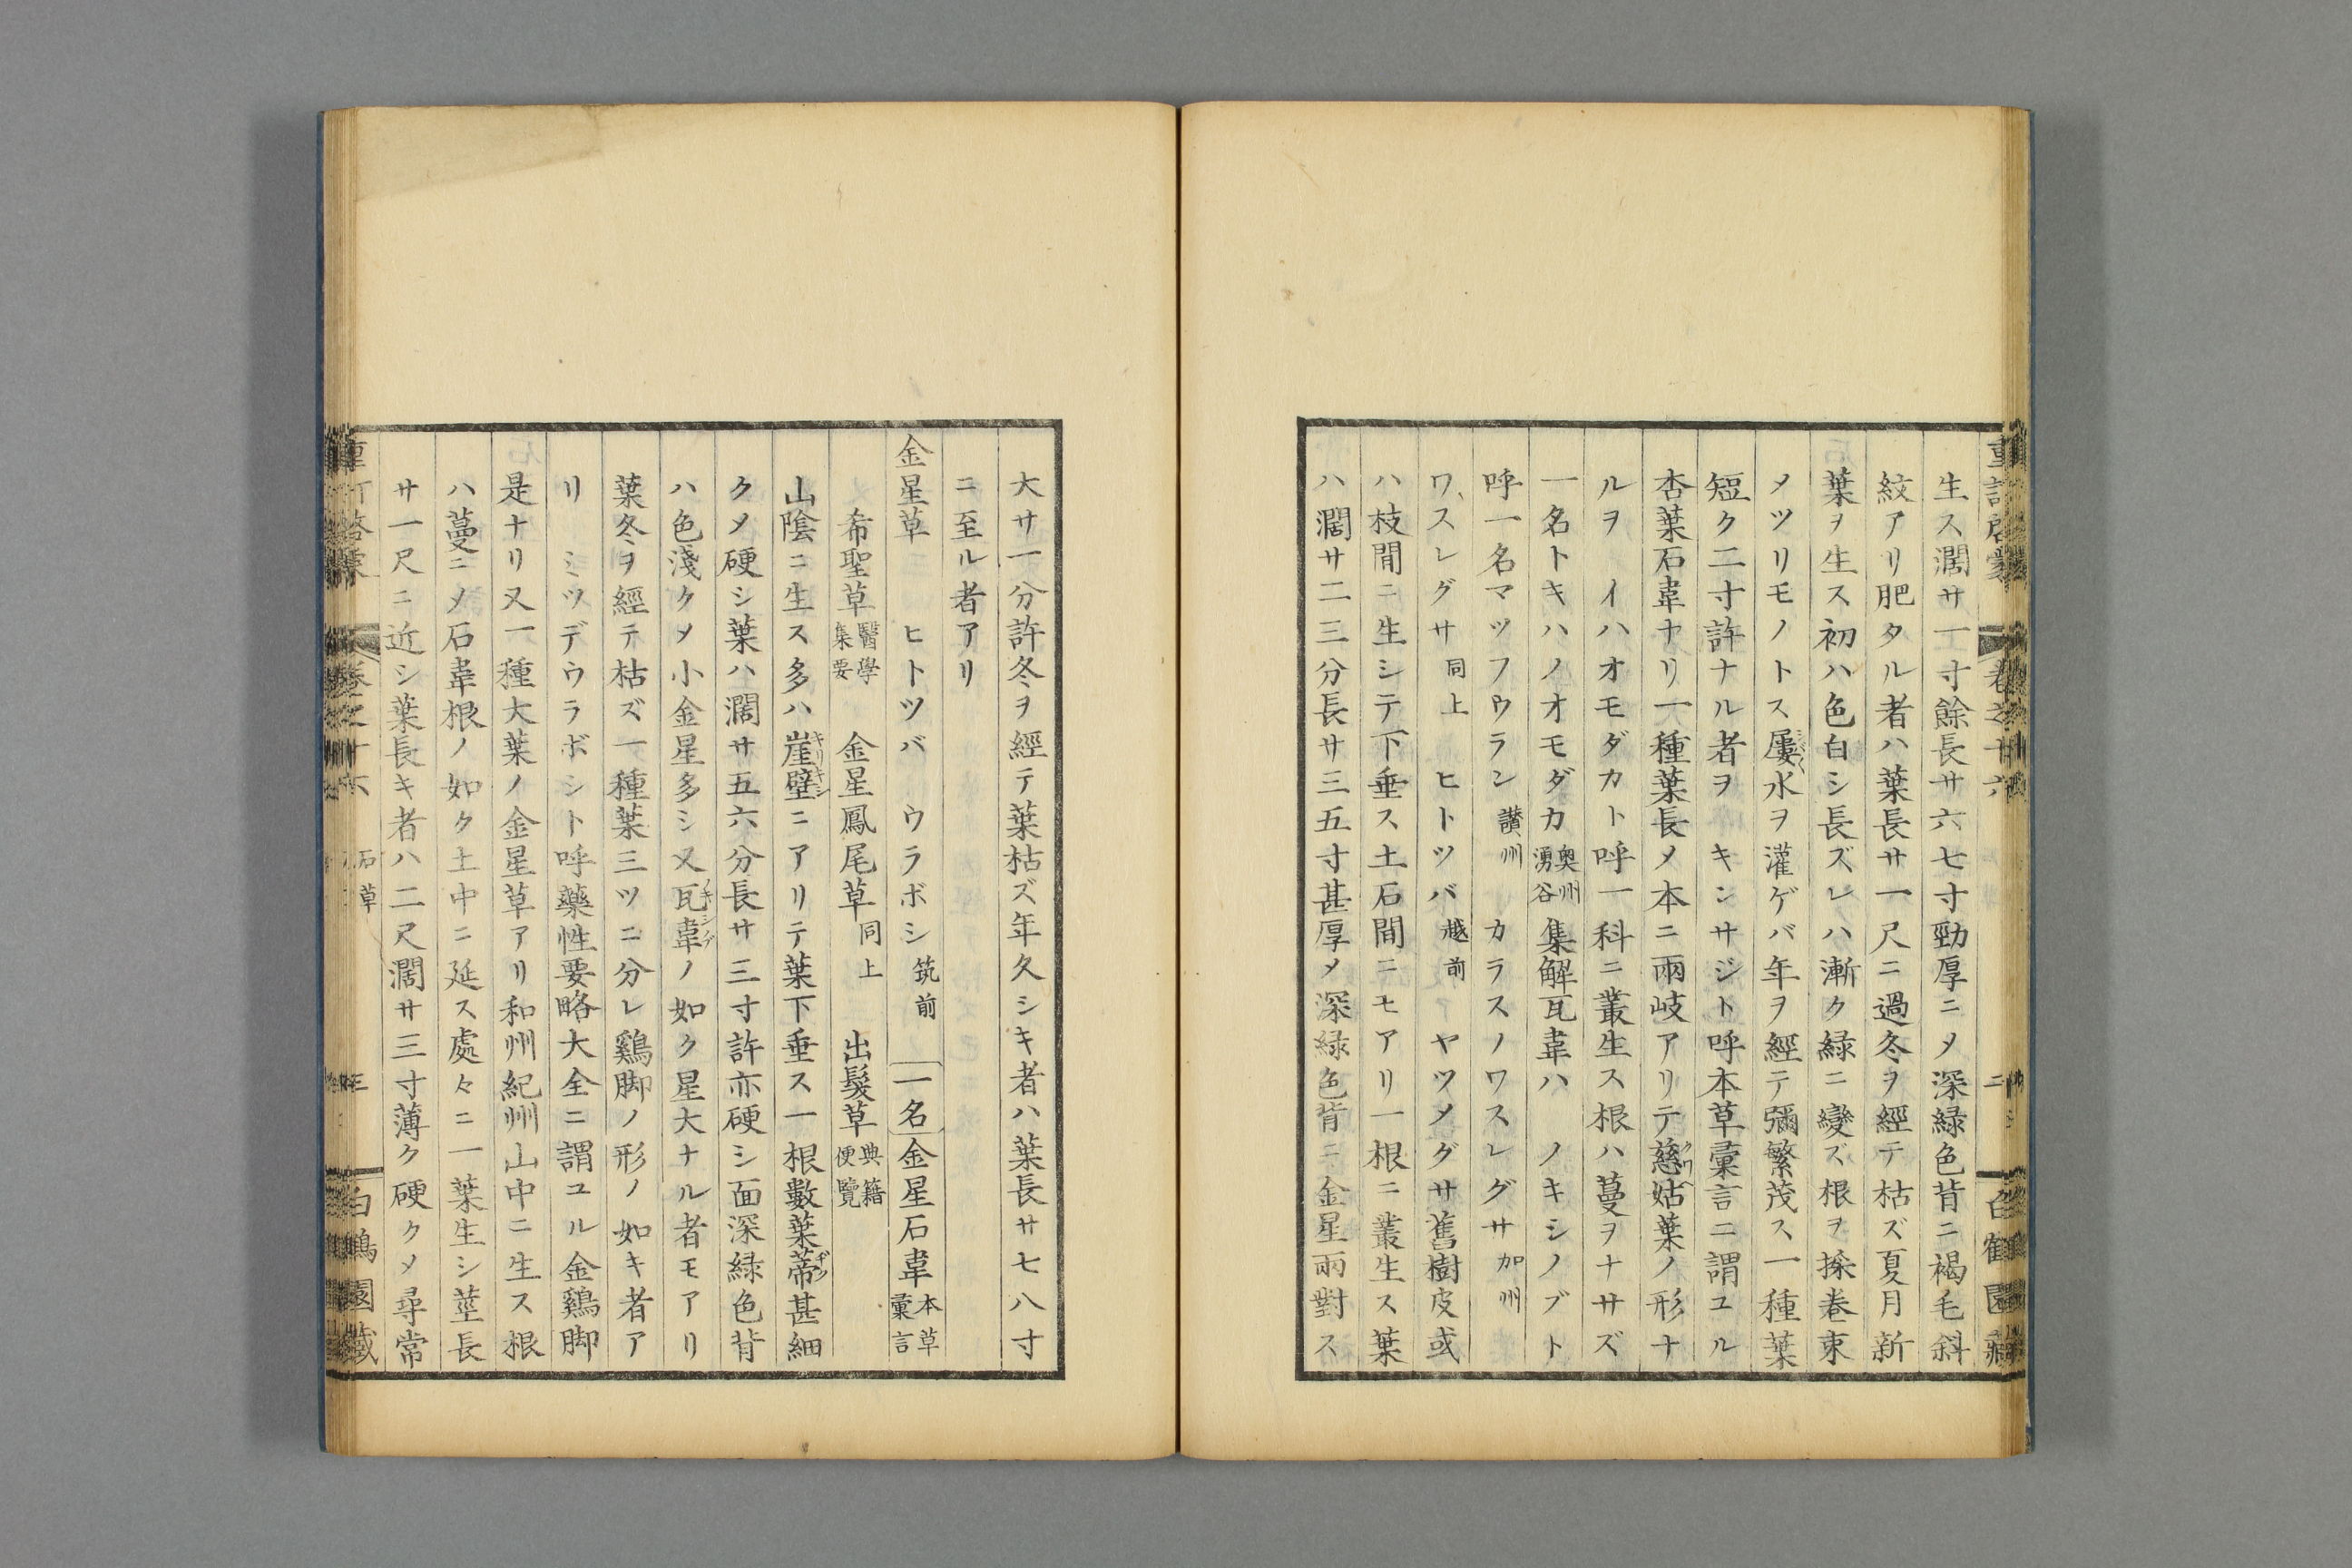 生ス濶サ一寸餘長サ六七寸勁厚ニ〆深緑色背ニ褐毛斜
紋アリ肥タル者ハ葉長サ一尺ニ過冬ヲ經テ枯ズ夏月新
葉ヲ生ス初ハ色白シ長ズレハ漸ク緑ニ變ズ根ヲ採卷束
〆ツリモノトス屢水ヲ灌ゲバ年ヲ經テ彌繁茂ス一種葉
短ク二寸許ナル者ヲ キンサジト呼本草彙言ニ謂ユル
杏葉石韋ナリ一種葉長〆本ニ兩岐アリテ慈姑葉ノ形ナ
ルヲ イハオモダカト呼一科ニ叢生ス根ハ蔓ヲナサズ
一名トキハノオモダカ 奥州湧谷 集解瓦韋ハ ノキシノブト
呼一名マツフウラン 讃州 カラスノワスレグサ 加州
ワスレグサ 同上 ヒトツバ 越前 ヤツメグサ舊樹皮或
ハ枝間ニ生シテ下垂ス土石間ニモアリ一根ニ叢生ス葉
ハ濶サ二三分長サ三五寸甚厚〆深緑色背ニ金星兩對ス
大サ一分許冬ヲ經テ葉枯ズ年久シキ者ハ葉長サ七八寸
ニ至ル者アリ
金星草 ヒトツバ ウラボシ 筑前 一名 金星石韋 本草彙言
希聖草 醫學集要 金星鳳尾草 同上 出髮草 典籍便覽
山陰ニ生ス多ハ崖壁ニアリテ葉下垂ス一根數葉蒂甚細
ク〆硬シ葉ハ濶サ五六分長サ三寸許亦硬シ面深緑色背
ハ色淺ク〆小金星多シ又瓦韋ノ如ク星大ナル者モアリ
葉冬ヲ經テ枯ズ一種葉三ツニ分レ鷄脚ノ形ノ如キ者ア
リ ミツデウラボシト呼藥性要略大全ニ謂ユル金鷄脚
是ナリ又一種大葉ノ金星草アリ和州紀州山中ニ生ス根
ハ蔓ニ〆石韋根ノ如ク土中ニ延ス處々ニ一葉生シ莖長
サ一尺ニ近シ葉長キ者ハ二尺濶サ三寸薄ク硬ク〆尋常